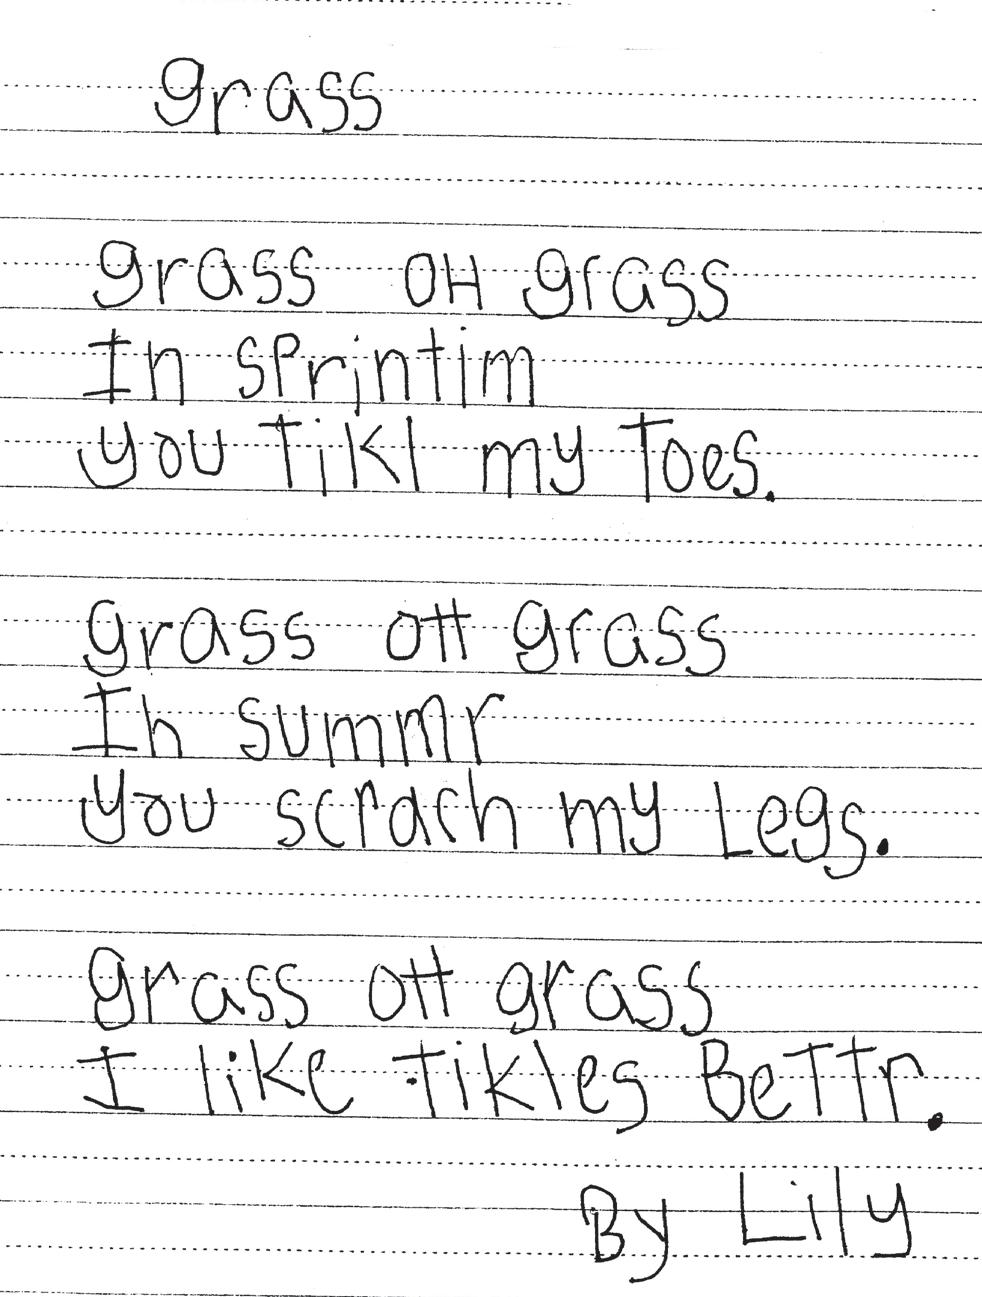 grass
grass oH grass
In sprintim
you Tikl my Toes.
grass oH grass
In summr
you scrach my Legs.
grass oH grass
I like Tikles BeTTr.
By Lily